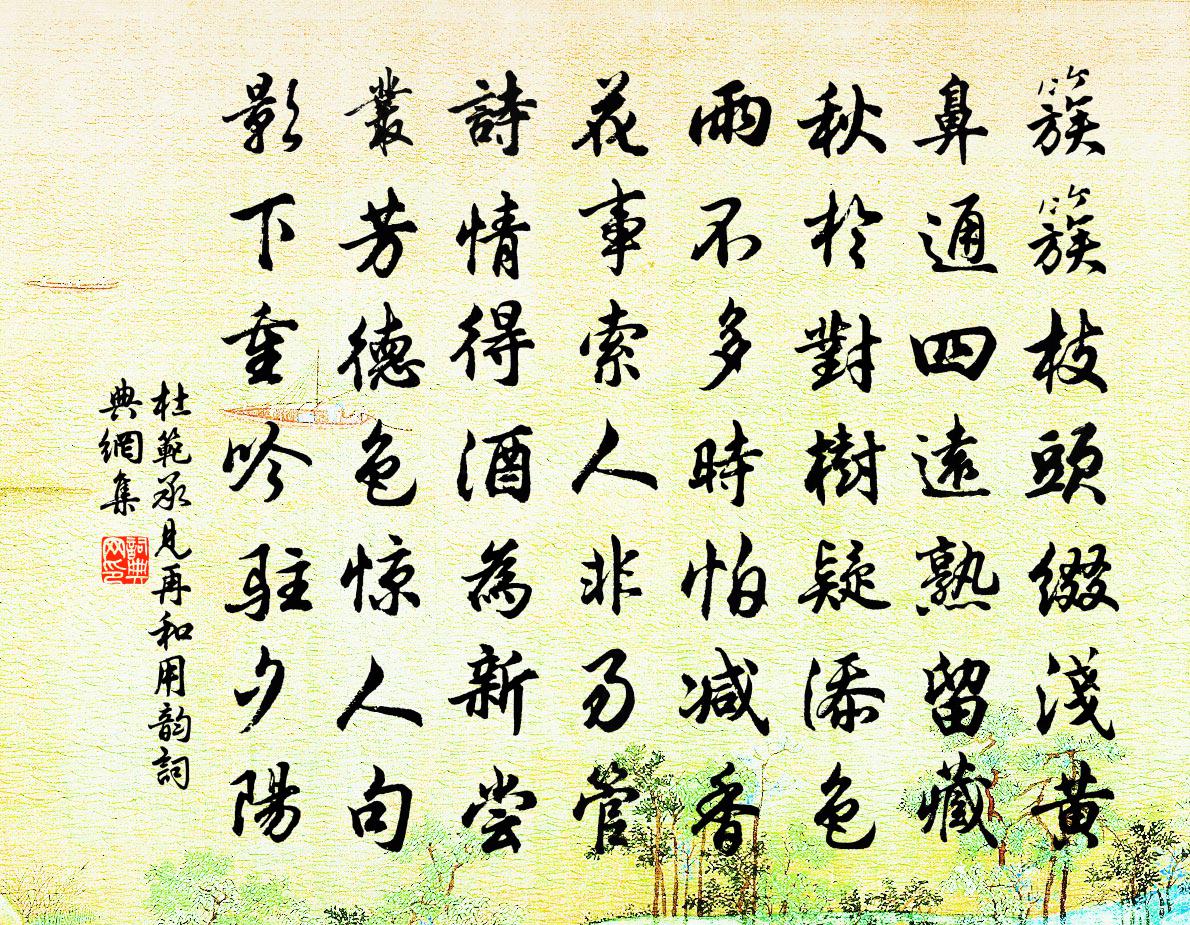 簇簇枝頭綴淺黃
鼻通四遠熟留藏
秋於對樹疑添色
雨不多時怕减香
花事索人非易管
詩情得酒為新尝
叢芳德色惊人句
影下重吟駐夕陽
杜範承見再和用韵詞
典網集
詞典网印